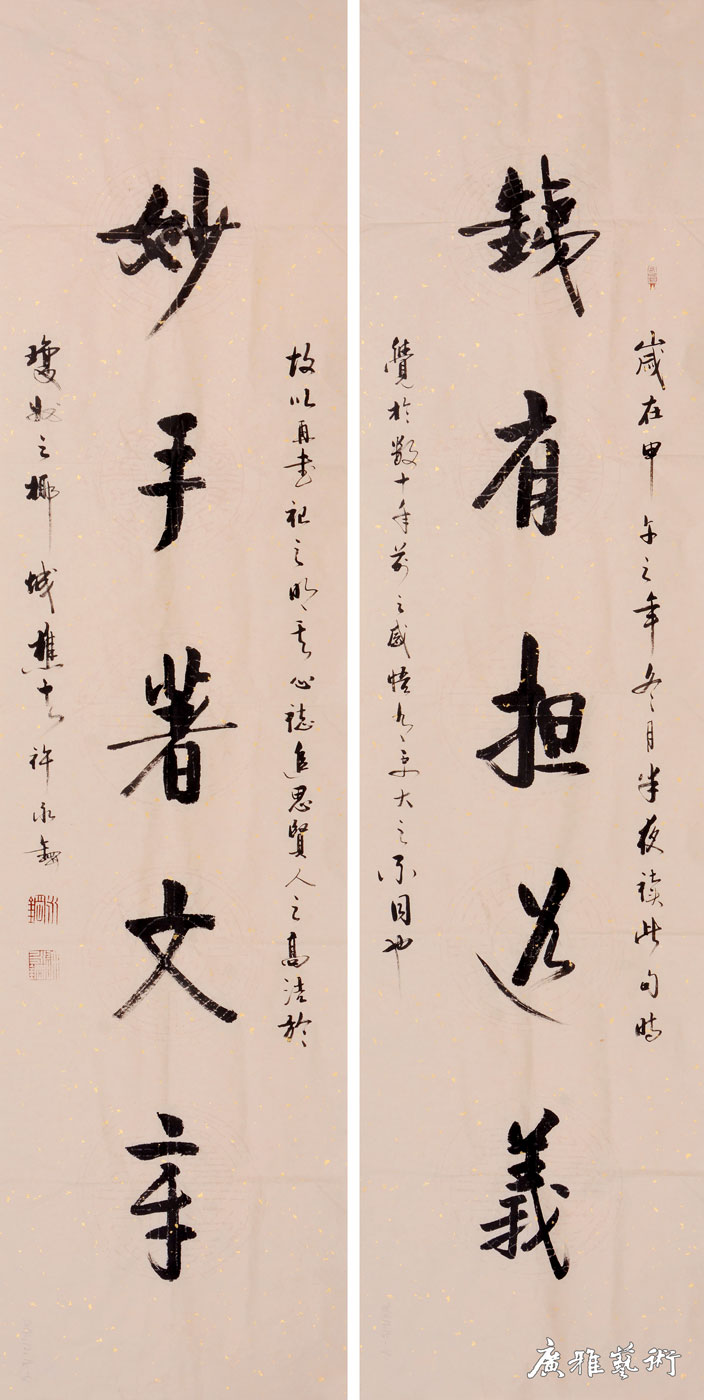 歲在甲午之年冬月半夜读此句時
銕肩担道義
覺於數十年前之感悟有更大之不同也
故以再書記之明其心誌追思賢人之高洁於
妙手著文章
瓊州之椰城樵夫許永
廣雅藝術